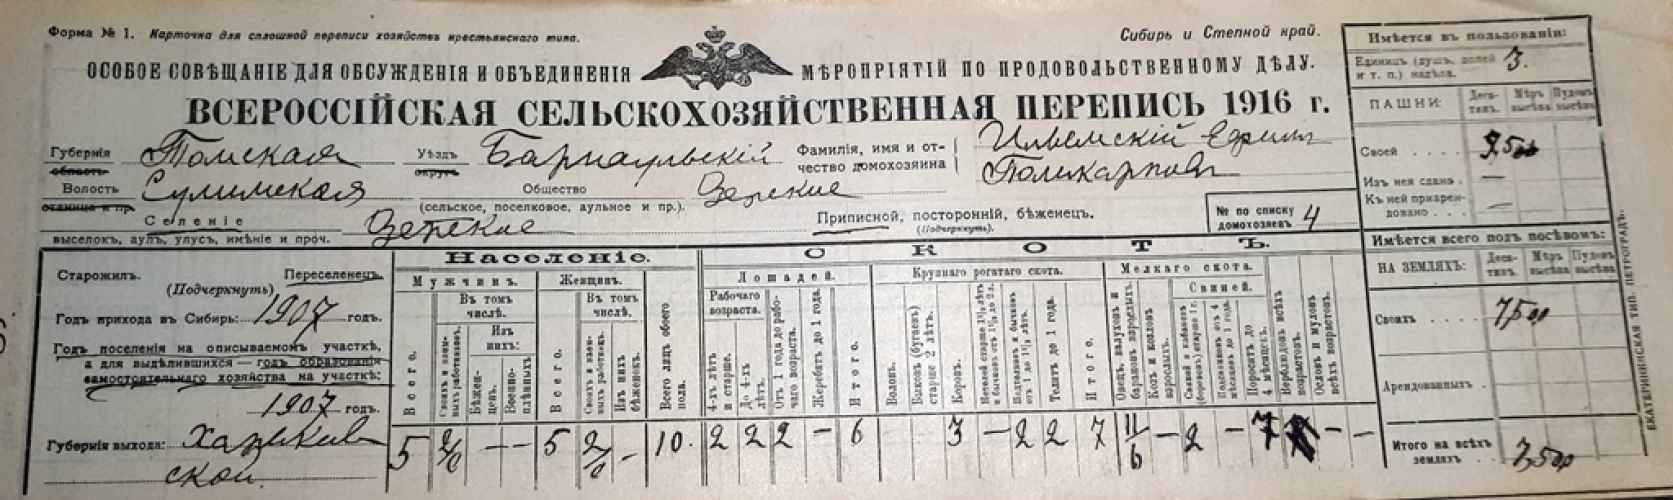 Форма № 1. Карточка для сплошной переписи хозяйствъ крестьянскаго типа.
Сибирь и Степной край.
ОСОБОЕ СОВѢЩАНІЕ ДЛЯ ОБСУЖДЕНІЯ И ОБЪЕДИНЕНІЯ МѢРОПРІЯТІЙ ПО ПРОДОВОЛЬСТВЕННОМУ ДѢЛУ.
ВСЕРОССІЙСКАЯ СЕЛЬСКОХОЗЯЙСТВЕННАЯ ПЕРЕПИСЬ 1916 г.
Губернія Томская Уѣздъ Барнаульскій Фамилія, имя и от-
область округъ чество домохозяина
Ефрим
Поликарповъ
Волость Сулимская Общество
станица и пр. (сельское, поселковое, аульное и пр.).
Селеніе
выселокъ, аулъ, улусъ, имѣніе и проч.
Приписной, посторонній, бѣженецъ.
(Подчеркнуть)
№ по списку
домохозяевъ 4
Старожилъ. Переселенецъ.
(Подчеркнуть)
Годъ прихода въ Сибирь: 1907 годъ.
Годъ поселенія на описываемомъ участкѣ,
а для выдѣлившихся — годъ образованія
самостоятельнаго хозяйства на участкѣ:
1907 годъ.
Губернія выхода: Харьков
ской.
Населеніе.
Мужчинъ. Женщинъ.
Всего.
Въ томъ числѣ.
Своихъ и наем-
ныхъ работниковъ.
Изъ нихъ:
Бѣжен-
цевъ.
Военно-
плѣнныхъ.
Всего.
Въ томъ числѣ.
Своихъ и наем-
ныхъ работницъ.
Изъ нихъ
бѣженокъ.
Всего лицъ обоего
пола.
СКОТЪ.
Лошадей.
Рабочаго
возраста.
4-хъ лѣтъ
и старше.
До 4-хъ
лѣтъ.
Отъ 1 года до рабо-
чаго возраста.
Жеребятъ до 1 года.
Итого.
Крупнаго рогатаго скота.
Воловъ.
Быковъ (бугаевъ)
старше 2 лѣтъ.
Коровъ.
Нетелей старше 1½ лѣтъ
и бычковъ отъ 1½ до 2 л.
Подтелковъ и бычковъ
отъ 1 до 1½ лѣтъ.
Телятъ до 1 года.
Итого.
Мелкаго скота.
Овецъ, валуховъ и
барановъ взрослыхъ.
Козъ и козловъ
взрослыхъ.
Свиней.
Свиней и кабановъ
(борововъ) старше 1 г.
Подсвинковъ отъ 4
мѣсяцевъ до 1 года.
Поросятъ до
4 мѣсяцевъ.
Верблюдовъ всѣхъ
возрастовъ.
Ословъ и муловъ
всѣхъ возрастовъ.
5 — — 5 — 10. 2 2 2 — 6 3 — 2 2 7 11/6 — 2 — 7 — —
Имѣется въ пользованіи:
Единицъ (душъ, долей
и т. п.) надѣла. 3.
ПАШНИ: Деся-
тинъ. Мѣръ
высѣва Пудовъ
высѣва
Своей . . . .
Изъ нея сдано . —
Къ ней приарен-
довано . . . . —
Имѣется всего подъ посѣвомъ:
НА ЗЕМЛЯХЪ: Деся-
тинъ. Мѣръ
высѣва Пудовъ
высѣва
Своихъ . . . . 7,50
Арендованныхъ .
Итого на всѣхъ
земляхъ . . . 7,50
ЕКАТЕРИНИНСКАЯ ТИП. ПЕТРОГРАДЪ.